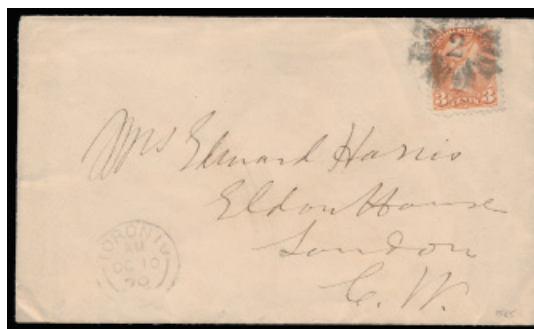 2
3 CENTS 3
Mrs Edward Harris
Eldon House
London
C. W.
TORONTO
AM
OC 10
70